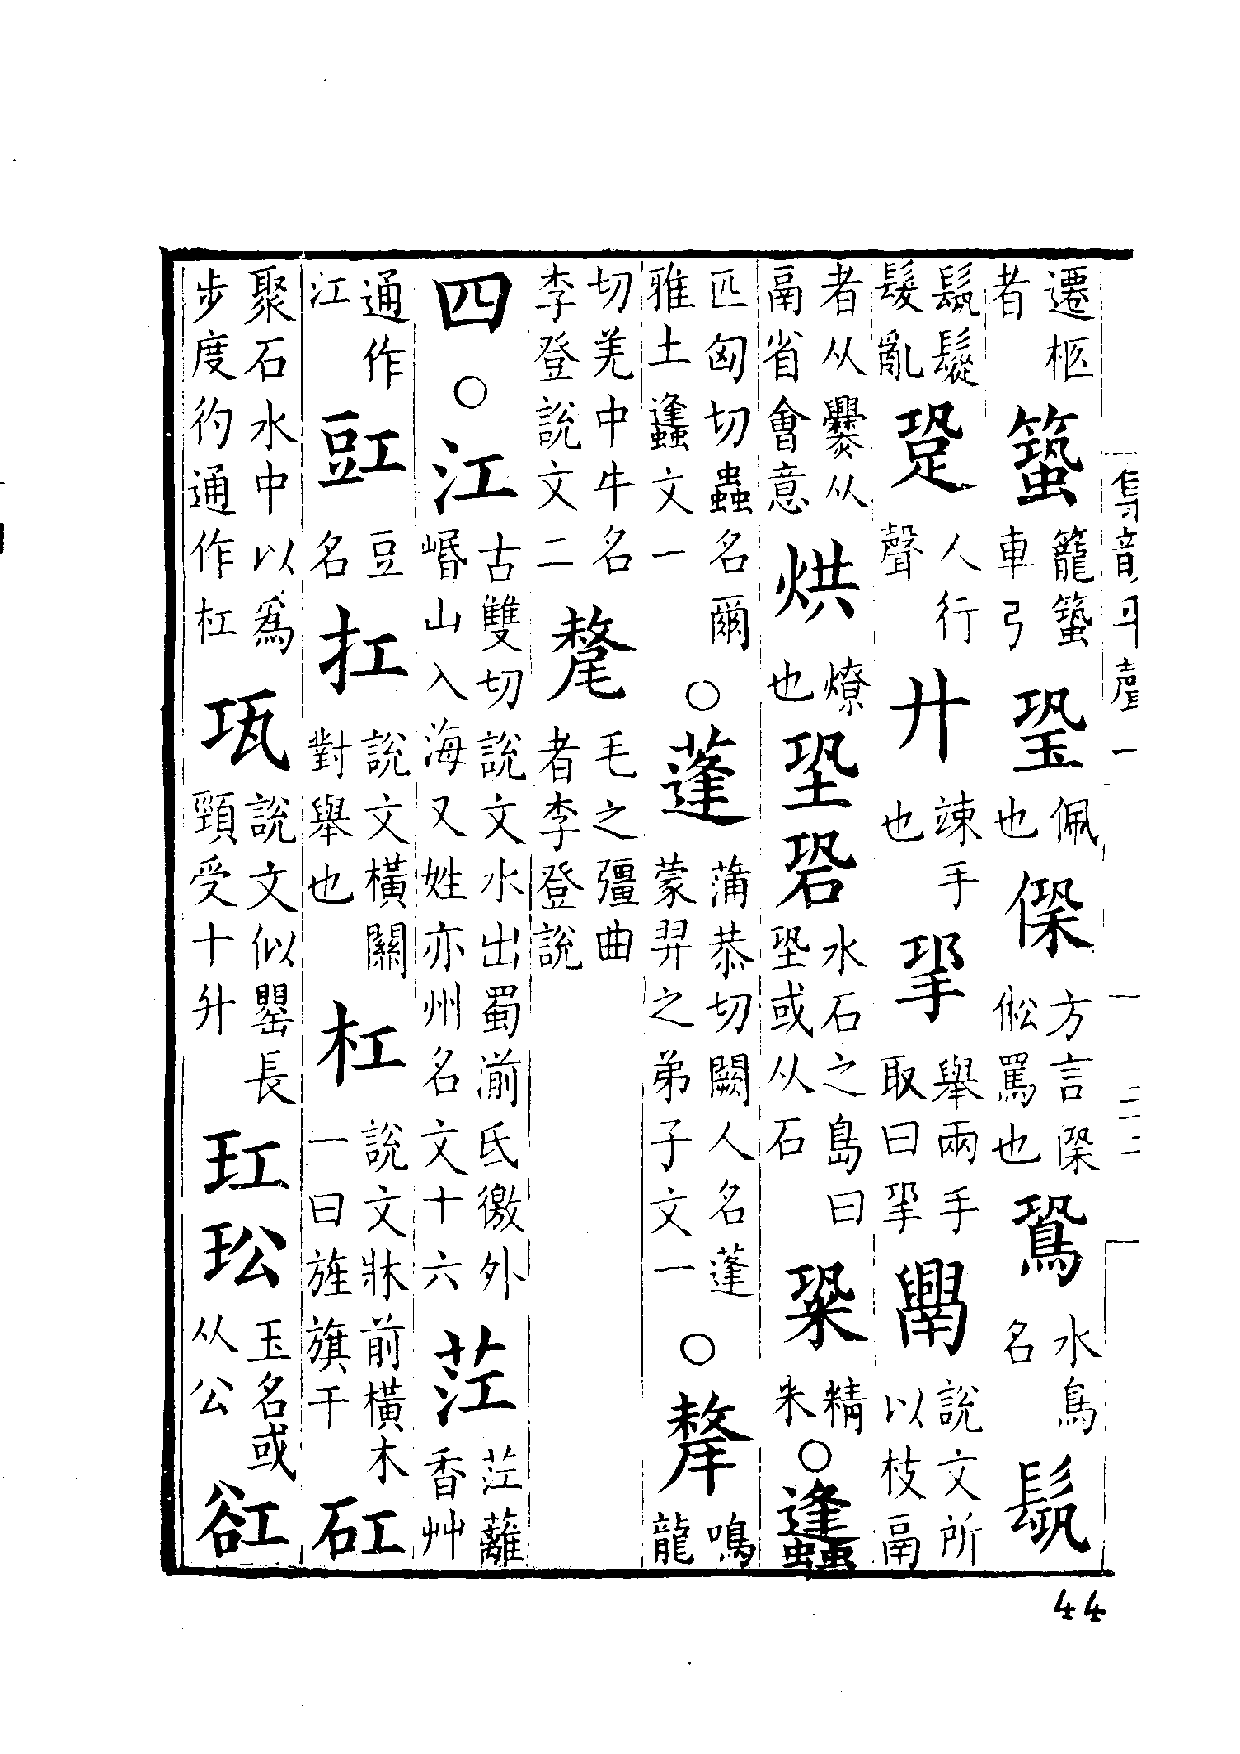 集韻平聲一
二十二
遷柩者 籠車弓 佩也 方言倯罵也 水鳥名
髮亂 跫 人行聲 廾 竦手也 㧬 舉兩手取曰㧬 䰜 說文所以枝鬲
者从爨从鬲省會意 烘 燎也 水石之島曰或从石 精米 ○
匹匈切蟲名爾雅土文一 ○ 蓬 蒲恭切闕人名蓬蒙羿之弟子文一 ○ 犛 鳴龍
切羌中牛名李登說文二 氂 毛之彊曲者李登說
四 ○ 江 古雙切說文水出蜀湔氐徼外㟭山入海又姓亦州名文十六 茳 茳蘺香艸
通作江 豇 豆名 扛 說文橫關對舉也 杠 說文牀前橫木一曰旌旗干 矼
聚石水中以爲步度彴通作杠 瓨 說文似罌長頸受十升 玒玜 玉名或从公
44